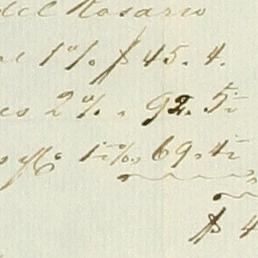 del Rosario
1% $ 45. 4.
2% „ 92. 5½
1½% 69. 4½
$ 4